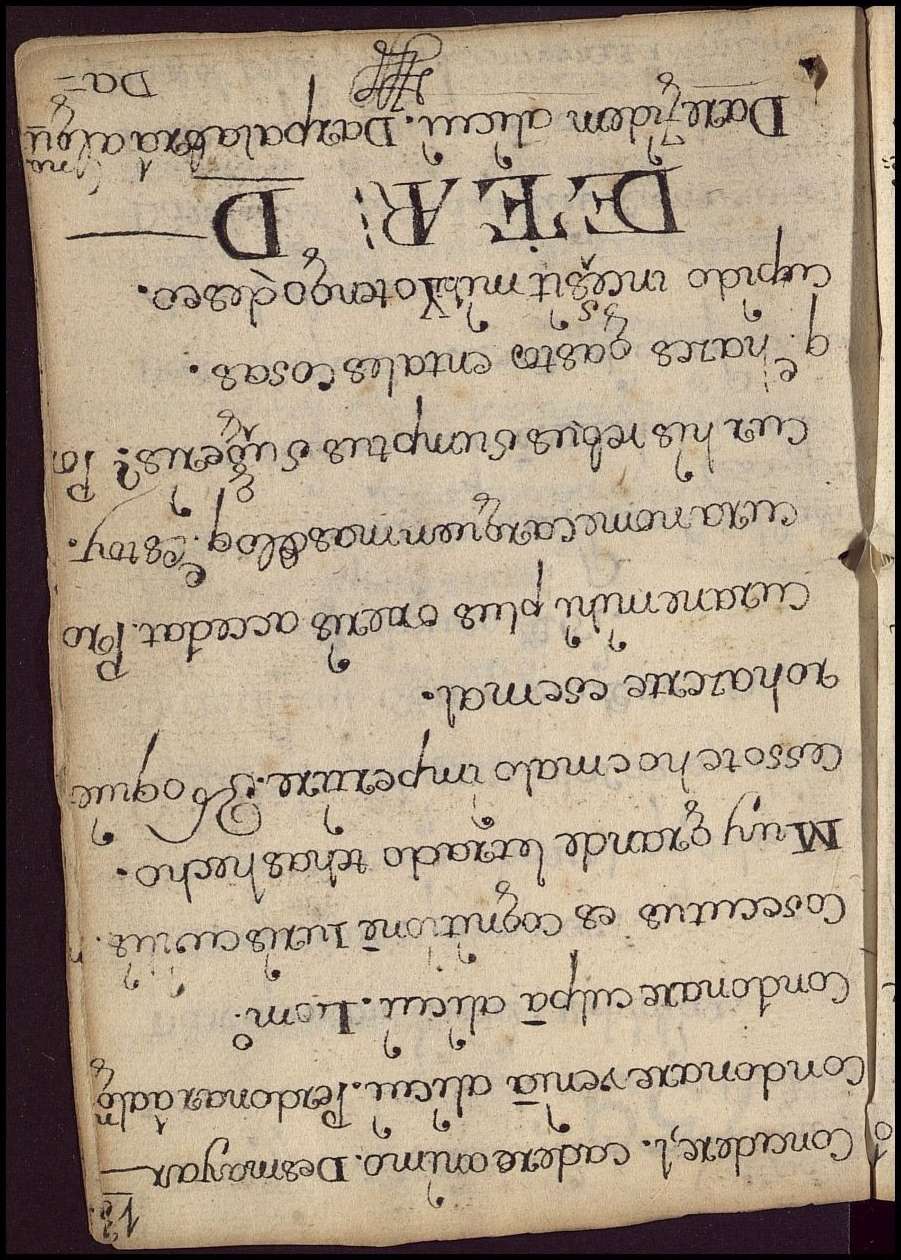 13.
Concidere, l. cadere animo. Desmayar
Condonare veniā alicui. Perdonar a algn
Condonare culpā alicui. Lo mo.
Cōsecutus es cognitionē iuris civilis.
Muy grande letrado te has hecho.
Cesso te hoc malo imperare. Yo que
ro hazerte ese mal.
Cura ne mihi plus oneris accedat. Pro
cura no me carguen mas de lo q. estoy.
Cur his rebus sumptus suggeris? Por
q. hazes gasto en tales cosas.
Cupido incessit mihi. Yo tengo deseo.
DE EAR: D
Dare fidem alicui. Dar palabra a algū
Da=